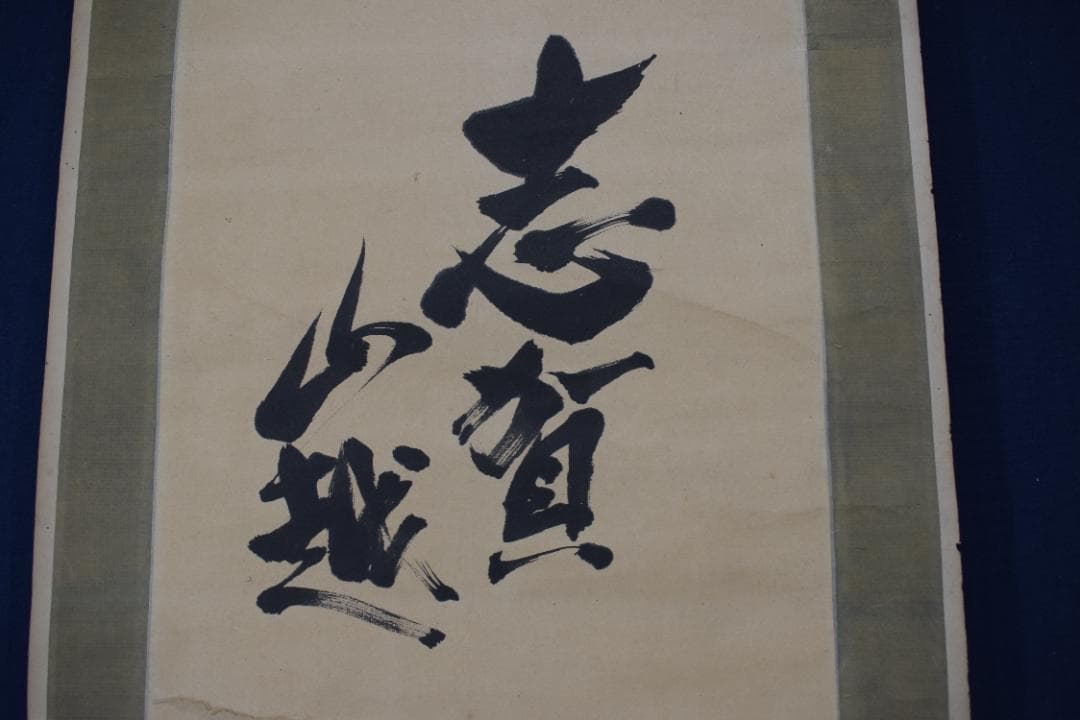 志賀
山越